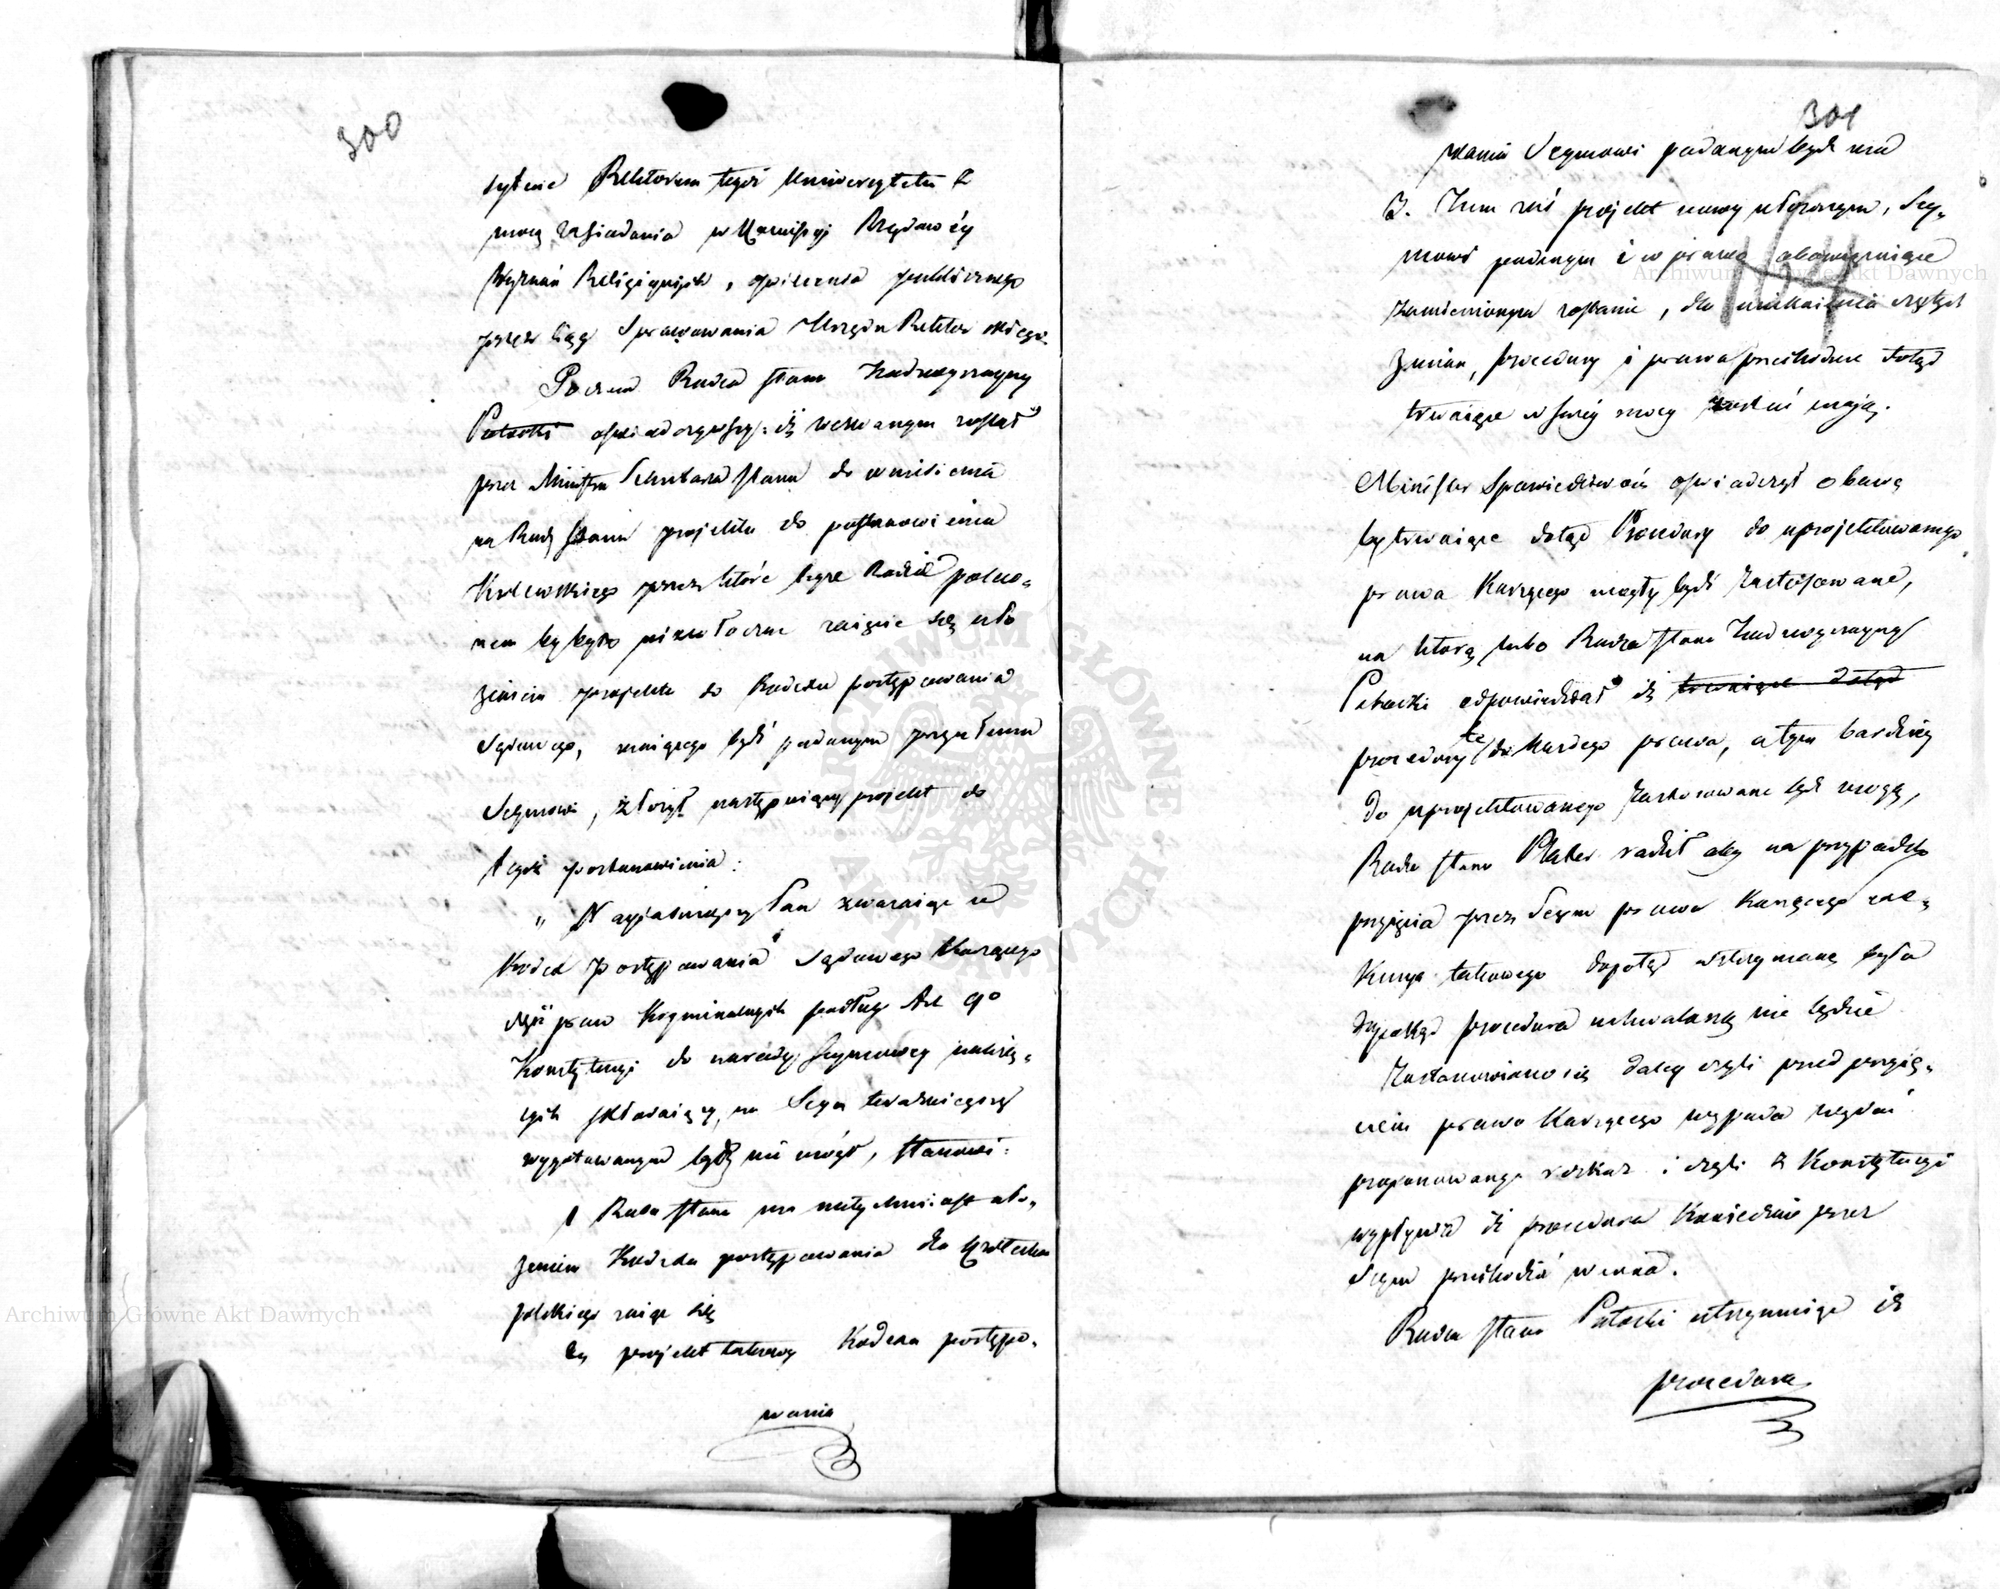 300
tytule Rektorem tegoż Uniwersytetu z
mocą zasiadania w Kommissyi Rządowéy
Wyznań Religijnych, oświecenia publicznego
przez ciąg sprawowania Urzędu Rektorskiego.
Poczem Radca Stanu Nadzwyczayny
Potocki oświadczywszy: iż wezwanym został
przez Ministra Sekretarza Stanu do wniesienia
na Radę Stanu projektu do postanowienia
Królewskiego przez któré teyże Radzie poleco-
nem by było niezwłoczne zaięcie się uło
żeniem projektu do Kodexu postępowania
Sądowego, maiącego bydź podanym przyszłemu
Seymowi, złożył następuiący projekt do
tegoż postanowienia:
„ N. Nayiaśnieyszy Pan zważaiąc iż
Kodex postępowania Sądowego Karzącego
część praw Kryminalnych podług Art 90
Konstytucyi do narady Seymowey należą-
cych składaiący, na Seym teraźnieyszy
wygotowanym bydź nie mógł, stanowi:
1 Rada Stanu ma natychmiast uło-
żeniem Kodexu postępowania dla Królestwa
polskiego zaiąć się
2 projekt takowy Kodexu postępo-
wania
301
wania Seymowi podanym bydź ma
3. Nim zaś projekt nowy ułożonym, Sey-
mowi podanym i w prawo obowiązuiące
zamienionym zostanie, dla uniknienia częstych
zmian, procedury i prawa przechodnie dotąd
trwaiące w swéy mocy zostać maią.
Minister Sprawiedliwości oświadczył obawę
by trwaiące dotąd Procedury do uprojektowanego
prawa Karzącego mogły bydź zastósowane,
na którą lubo Radca Stanu Nadzwyczayny
Potocki odpowiedział iż trwaiące dotąd
procedury te do każdego prawa, a tym bardziey
do uprojektowanego zastosowane bydź mogą,
Radca Stanu Plater radził aby na przypadek
przyięcia przez Seym prawa Karzącego exe-
kucya takowego dopotąd wstrzymaną była
dopokąd procedura uchwaloną nie będzie
Zastanowiono się daley czyli przed przyię-
ciem prawa Karzącego wypada wydać
proponowany rozkaz i czyli z Konstytucyi
wypływa iż procedura Koniecznie przez
Seym przechodzić winna.
Radca Stanu Potocki utrzymuiąc iż
procedura